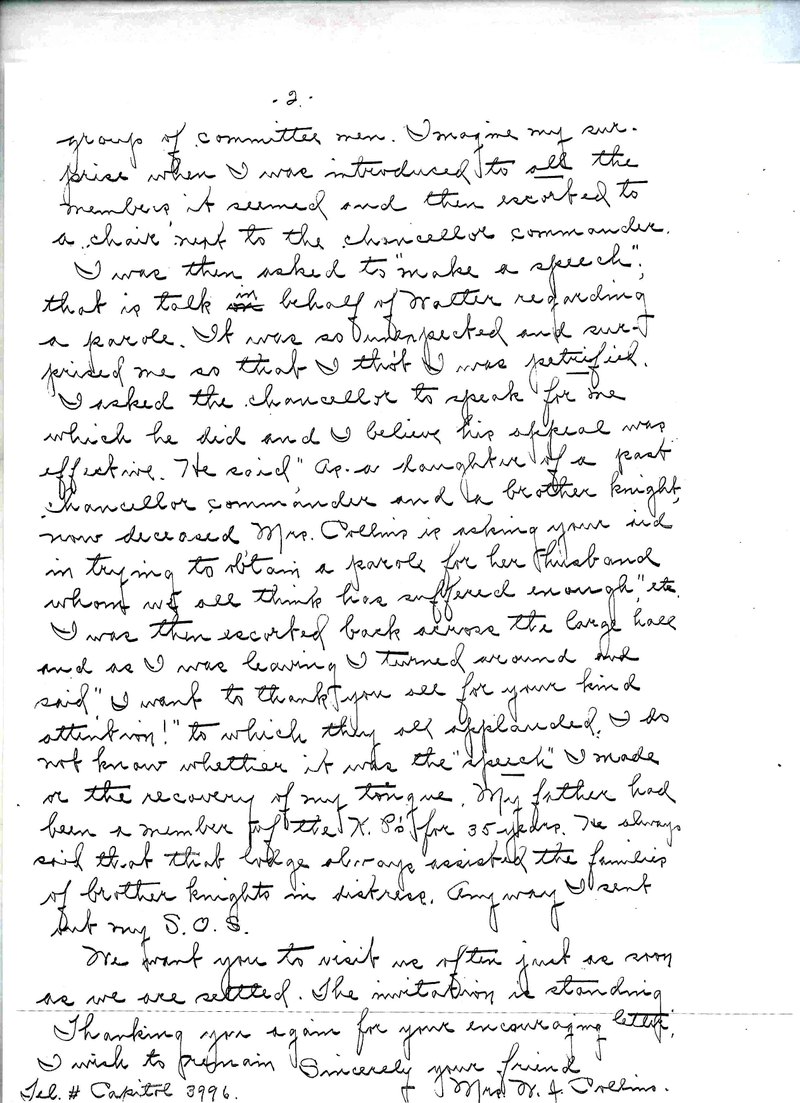 -2.-
group of committee men. Imagine my sur-
prise when I was introduced to all the
members it seemed and then escorted to
a chair next to the chancellor commander.
I was then asked to "make a speech",
that is talk in behalf of Walter regarding
a parole. It was so unexpected and sur-
prised me so that I tho't I was petrified.
I asked the chancellor to speak for me
which he did and I believe his appeal was
effective. He said "As a daughter of a past
chancellor commander and a brother knight,
now deceased Mrs. Collins is asking your aid
in trying to obtain a parole for her husband
whom we all think has suffered enough," etc.
I was then escorted back across the large hall
and as I was leaving I turned around and
said "I want to thank you all for your kind
attention!" to which they all applauded. I do
not know whether it was the "speech" I made
or the recovery of my tongue. My father had
been a member of the K. P's for 35 years. He always
said that that lodge always assisted the families
of brother knights in distress. Anyway I sent
out my S.O.S.
We want you to visit us often just as soon
as we are settled. The invitation is standing
Thanking you again for your encouraging letter,
I wish to remain Sincerely your friend
Tel. # Capitol 3996. Mrs W. J. Collins.